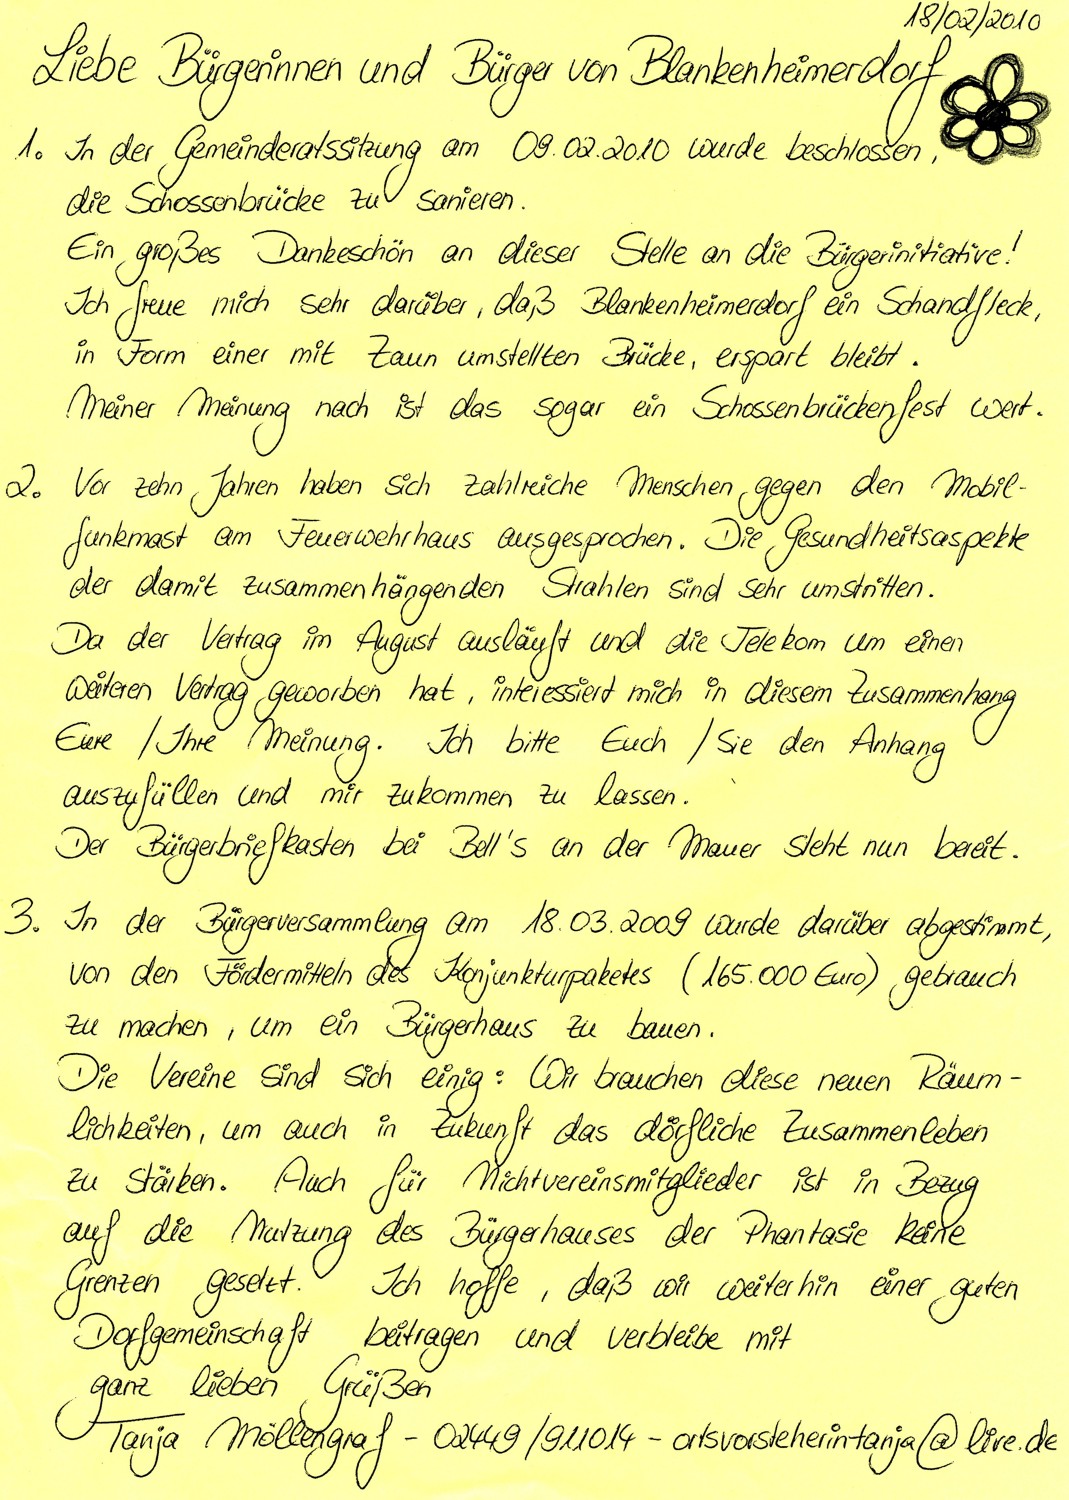 18/02/2010
Liebe Bürgerinnen und Bürger von Blankenheimerdorf
1. In der Gemeinderatssitzung am 09.02.2010 wurde beschlossen,
die Schossenbrücke zu sanieren.
Ein großes Dankeschön an dieser Stelle an die Bürgerinitiative!
Ich freue mich sehr darüber, daß Blankenheimerdorf ein Schandfleck,
in Form einer mit Zaun umstellten Brücke, erspart bleibt.
Meiner Meinung nach ist das sogar ein Schossenbrückenfest wert.
2. Vor zehn Jahren haben sich zahlreiche Menschen gegen den Mobil-
funkmast am Feuerwehrhaus ausgesprochen. Die Gesundheitsaspekte
der damit zusammenhängenden Strahlen sind sehr umstritten.
Da der Vertrag im August ausläuft und die Telekom um einen
weiteren Vertrag geworben hat, interessiert mich in diesem Zusammenhang
Eure / Ihre Meinung. Ich bitte Euch / Sie den Anhang
auszufüllen und mir zukommen zu lassen.
Der Bürgerbriefkasten bei Bell's an der Mauer steht nun bereit.
3. In der Bürgerversammlung am 18.03.2009 wurde darüber abgestimmt,
von den Fördermitteln des Konjunkturpaketes (165.000 Euro) gebrauch
zu machen, um ein Bürgerhaus zu bauen.
Die Vereine sind sich einig: Wir brauchen diese neuen Räum-
lichkeiten, um auch in Zukunft das dörfliche Zusammenleben
zu stärken. Auch für Nichtvereinsmitglieder ist in Bezug
auf die Nutzung des Bürgerhauses der Phantasie keine
Grenzen gesetzt. Ich hoffe, daß wir weiterhin einer guten
Dorfgemeinschaft beitragen und verbleibe mit
ganz lieben Grüßen
Tanja Möllengraf - 02449/911014 - ortsvorsteherintanja@live.de